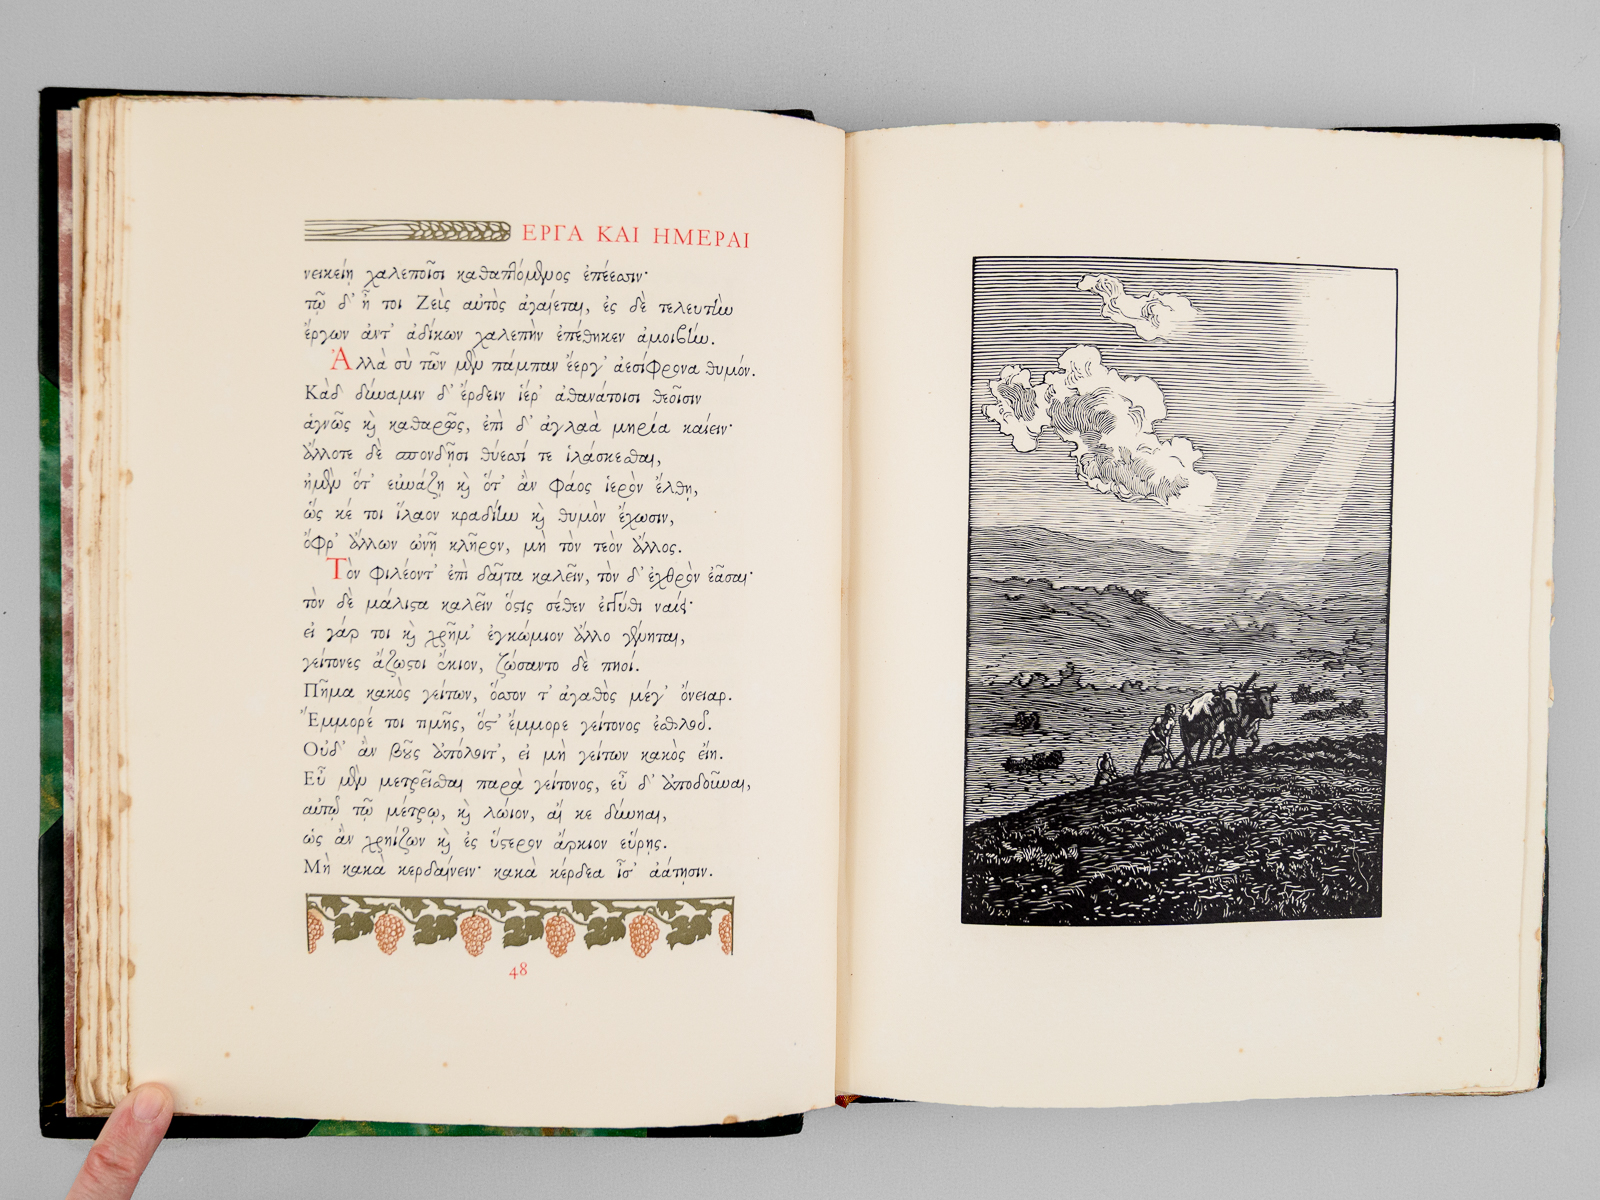 ΕΡΓΑ ΚΑΙ ΗΜΕΡΑΙ
νεικείῃ χαλεποῖσι καθαπτόμενος ἐπέεσσιν·
τῷ δ' ἦ τοι Ζεὺς αὐτὸς ἀγαίεται, ἐς δὲ τελευτὴν
ἔργων ἀντ' ἀδίκων χαλεπὴν ἐπέθηκεν ἀμοιβήν.
Ἀλλὰ σὺ τῶν μὲν πάμπαν ἔεργ' ἀεσίφρονα θυμόν.
Κὰδ δύναμιν δ' ἔρδειν ἱέρ' ἀθανάτοισι θεοῖσιν
ἁγνῶς καὶ καθαρῶς, ἐπὶ δ' ἀγλαὰ μηρία καίειν·
ἄλλοτε δὲ σπονδῇσι θύεσσί τε ἱλάσκεσθαι,
ἠμὲν ὅτ' εὐνάζῃ καὶ ὅτ' ἂν φάος ἱερὸν ἔλθῃ,
ὥς κέ τοι ἵλαον κραδίην καὶ θυμὸν ἔχωσιν,
ὄφρ' ἄλλων ὠνῇ κλῆρον, μὴ τὸν τεὸν ἄλλος.
Τὸν φιλέοντ' ἐπὶ δαῖτα καλεῖν, τὸν δ' ἐχθρὸν ἐᾶσαι·
τὸν δὲ μάλιστα καλεῖν ὅστις σέθεν ἐγγύθι ναίει·
εἰ γάρ τοι καὶ χρῆμ' ἐγκώμιον ἄλλο γένηται,
γείτονες ἄζωστοι ἔκιον, ζώσαντο δὲ πηοί.
Πῆμα κακὸς γείτων, ὅσσον τ' ἀγαθὸς μέγ' ὄνειαρ.
Ἔμμορέ τοι τιμῆς, ὅστ' ἔμμορε γείτονος ἐσθλοῦ.
Οὐδ' ἂν βοῦς ἀπόλοιτ', εἰ μὴ γείτων κακὸς εἴη.
Εὖ μὲν μετρεῖσθαι παρὰ γείτονος, εὖ δ' ἀποδοῦναι,
αὐτῷ τῷ μέτρῳ, καὶ λώιον, αἴ κε δύνηαι,
ὡς ἂν χρηίζων καὶ ἐς ὕστερον ἄρκιον εὕρῃς.
Μὴ κακὰ κερδαίνειν· κακὰ κέρδεα ἶσ' ἀάτῃσιν.
48